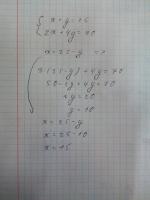 x + y = 25
2x + 4y = 70
x = 25 - y =>
2(25 - y) + 4y = 70
50 - 2y + 4y = 70
2y = 20
y = 10
x = 25 - y
x = 25 - 10
x = 15